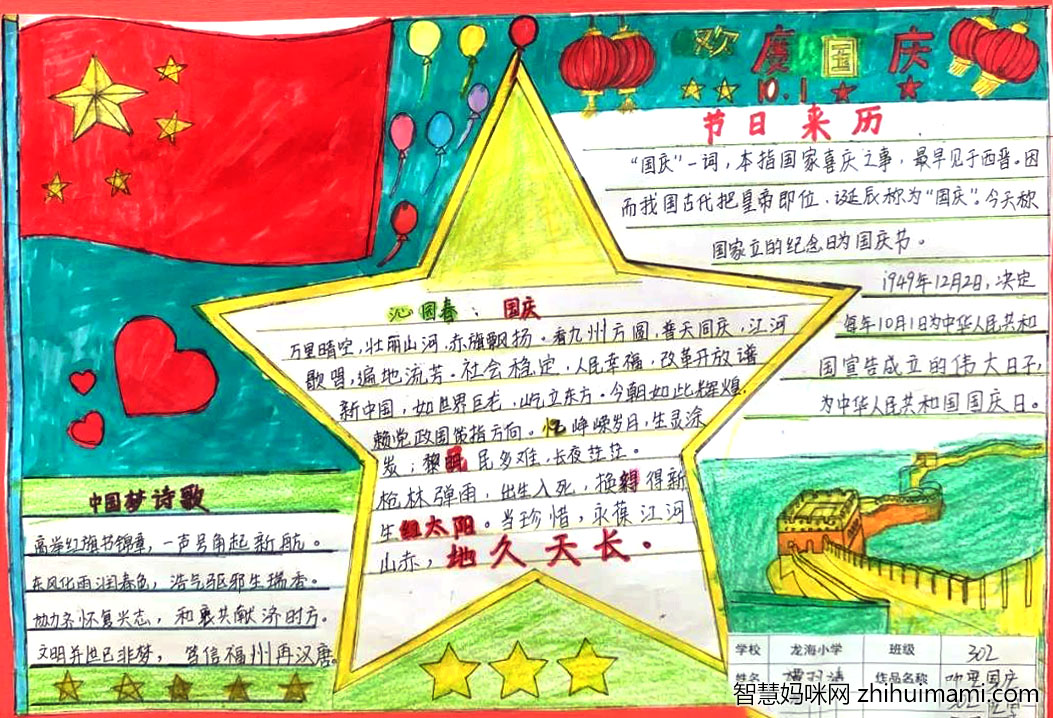 欢度国庆
10.1
节日来历
“国庆”一词，本指国家喜庆之事，最早见于西晋。因
而我国古代把皇帝即位、诞辰称为“国庆”。今天称
国家立的纪念日为国庆节。
1949年12月2日，决定
每年10月1日为中华人民共和
国宣告成立的伟大日子，
为中华人民共和国国庆日。
沁园春：国庆
万里晴空，壮丽山河，赤旗飘扬。看九州方圆，普天同庆，江河
歌唱，遍地流芳。社会稳定，人民幸福，改革开放谱
新中国，如世界巨龙，屹立东方。今朝如此辉煌，
赖党政国策指方向。忆峥嵘岁月，生灵涂
炭；黎民多难，长夜茫茫。
枪林弹雨，出生入死，换得新
生红太阳。当珍惜，永葆江河
山赤，地久天长。
中国梦诗歌
高举红旗书锦章，一声号角起新航。
东风化雨润春色，浩气驱邪生瑞香。
协力齐怀复兴志，和衷共献济时方。
文明并进已非梦，笃信福州再汉唐。
学校 龙海小学 班级 302
姓名 作品名称 欢度国庆
智慧妈咪网 zhihuimami.com